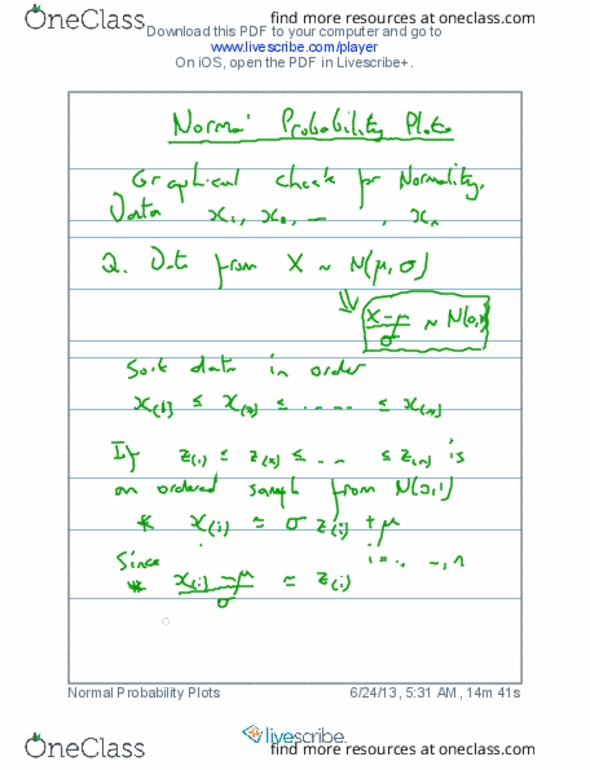 OneClass
find more resources at oneclass.com
Download this PDF to your computer and go to
www.livescribe.com/player
On iOS, open the PDF in Livescribe+.
Normal Probability Plots
Graphical check for Normality.
Data x₁, x₂, — , xₙ
Q. Data from X ~ N(μ, σ)
⇓ (X-μ)/σ ~ N(0,1)
Sort data in order
x₍₁₎ ≤ x₍₂₎ ≤ ..... ≤ x₍ₙ₎
If z₍₁₎ ≤ z₍₂₎ ≤ .. - ≤ z₍ₙ₎ is
an ordered sample from N(0,1)
* x₍ᵢ₎ ≃ σ z₍ᵢ₎ + μ
Since i=., -, n
* (x₍ᵢ₎ - μ)/σ ≃ z₍ᵢ₎
Normal Probability Plots
6/24/13, 5:31 AM, 14m 41s
livescribe
OneClass
find more resources at oneclass.com